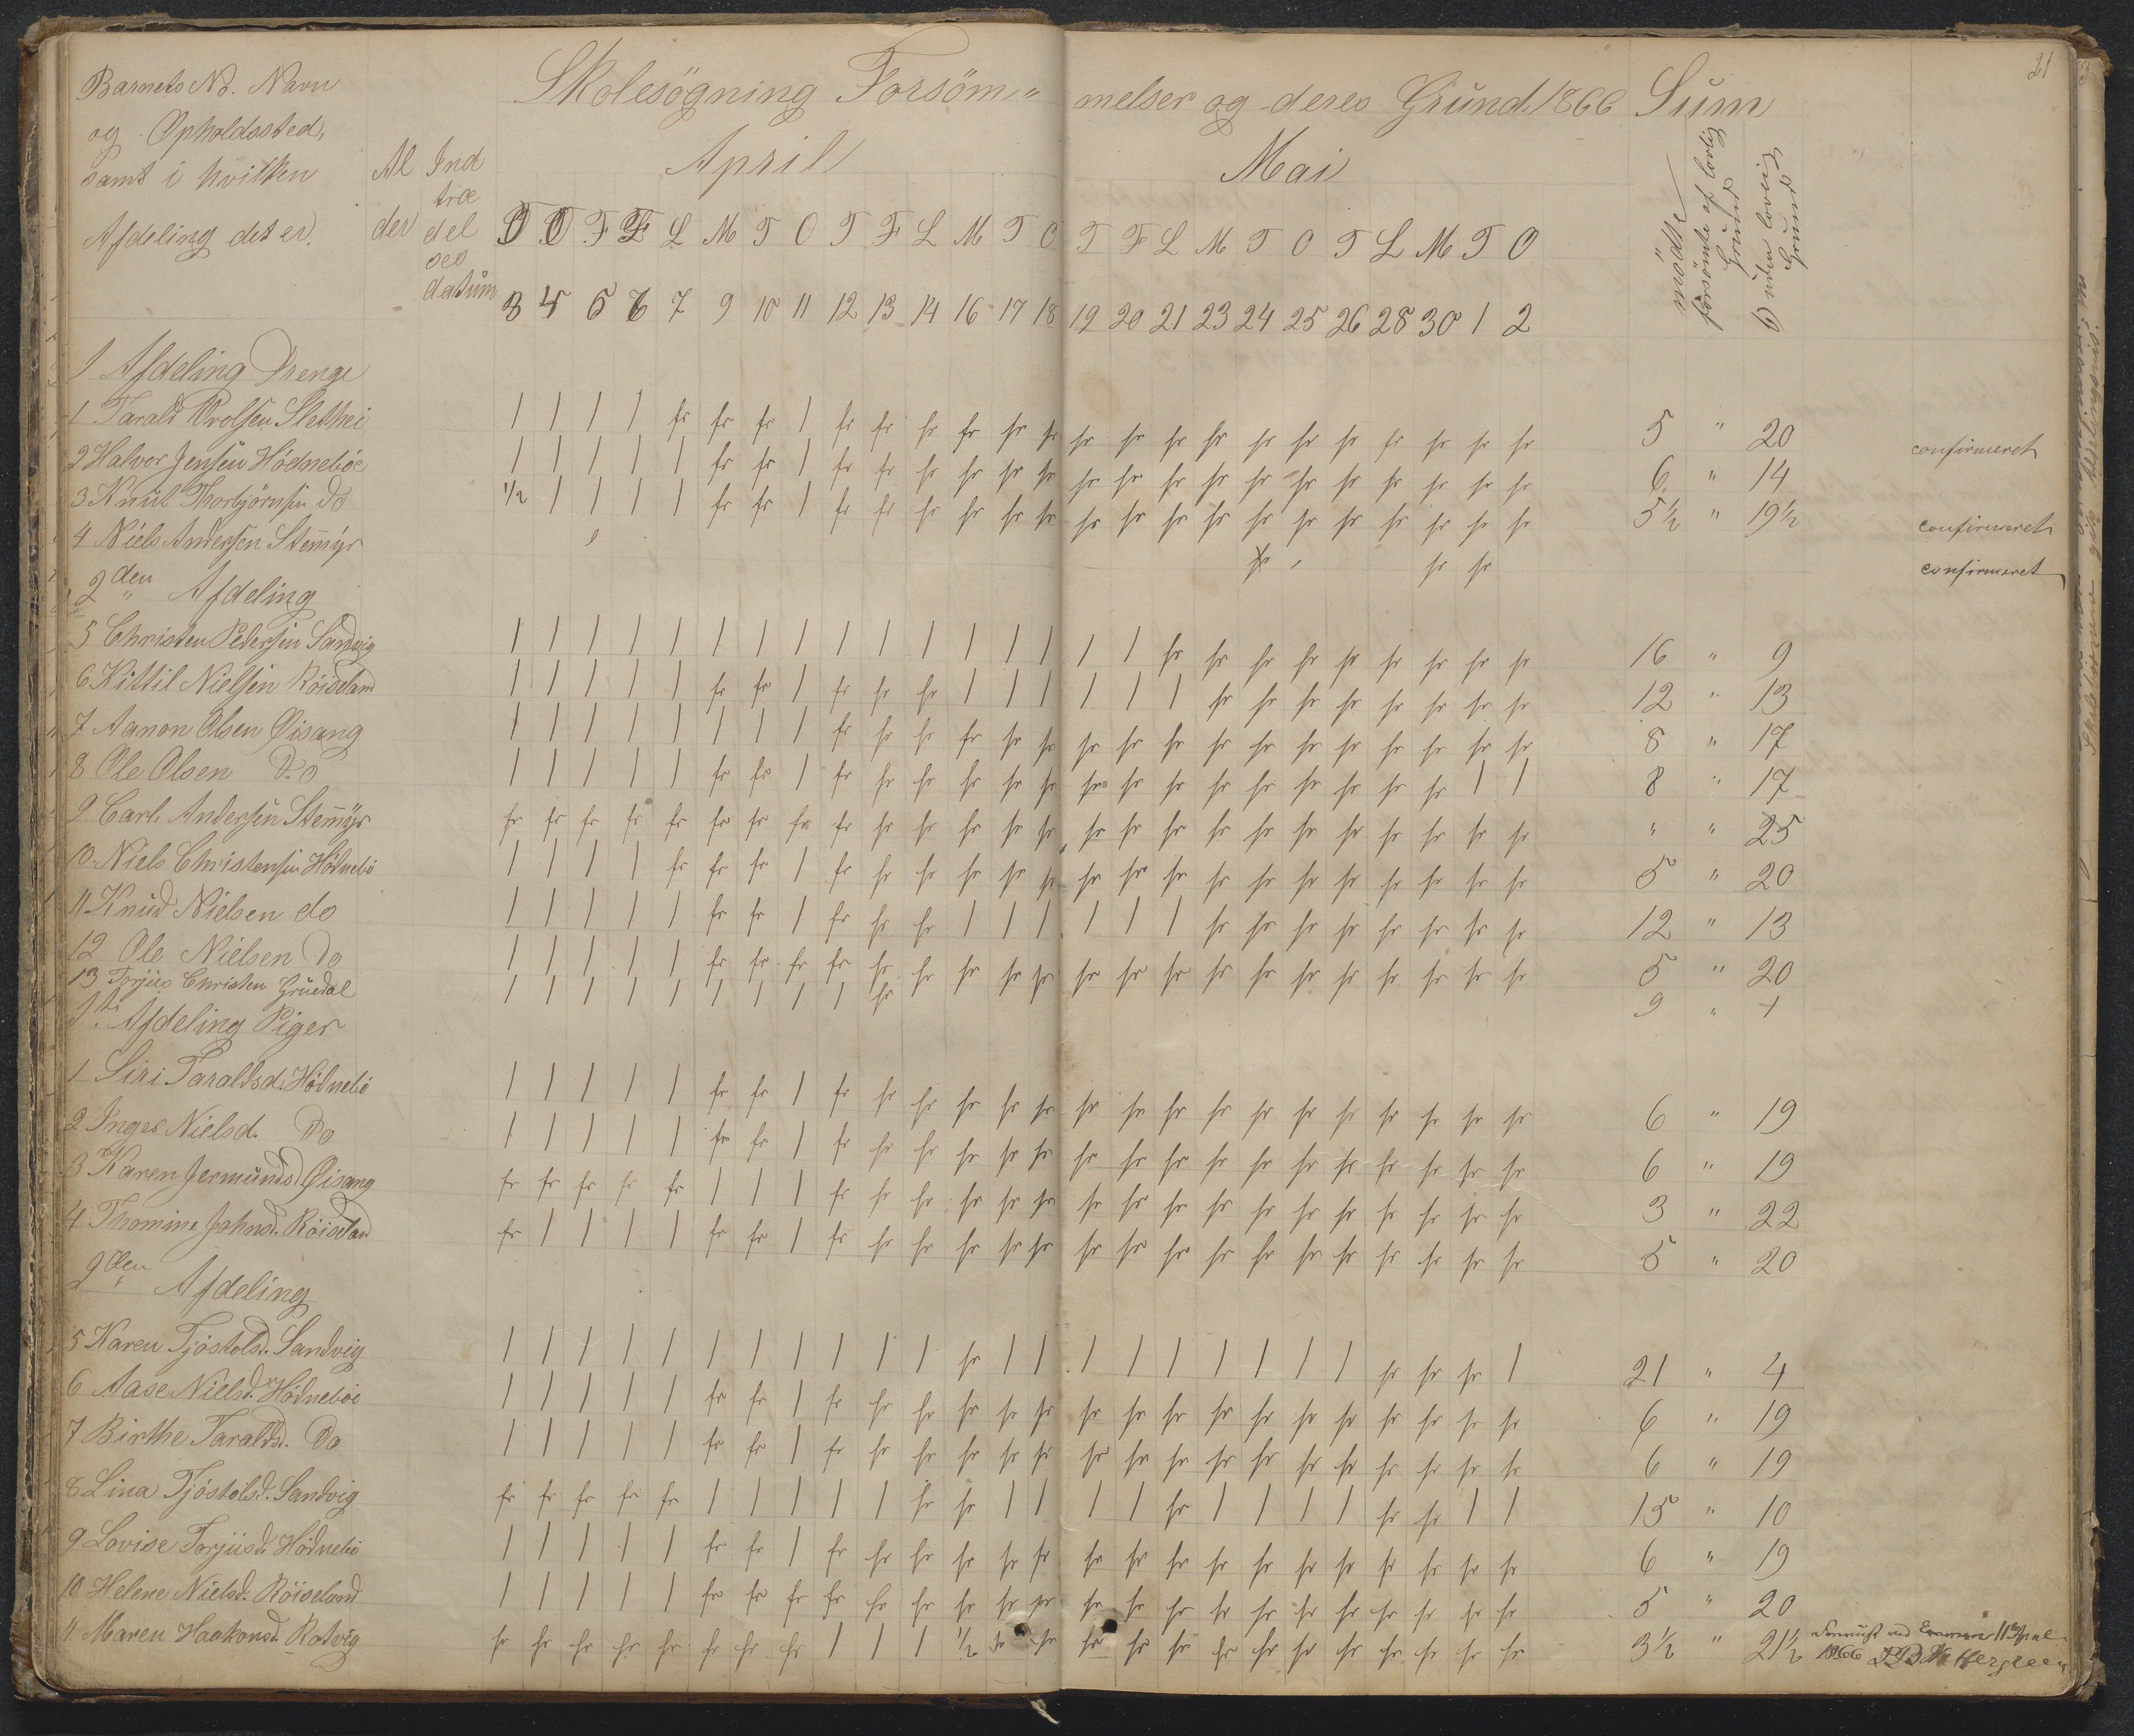 21
Skolesögning Forsöm„ melser og deres Grund 1866 Sum
Barnets No. Navn
og Opholdssted,
samt i hvilken
Afdeling det er.
Al der
Ind træ del ses datum
April Mai
mödte
forsömte af lovlig Grund
D uden lovlig Grund
T O F F L M T O T F L M T O T F L M T O T L M T O
3 4 5 6 7 9 10 11 12 13 14 16 17 18 19 20 21 23 24 25 26 28 30 1 2
1 Afdeling Drenge
1 Tarald Orolsen Slethei | | | | fr fr fr | fr fr fr fr fr fr fr fr fr fr fr fr fr fr fr fr fr 5 " 20 confirmeret
2 Halvor Jensen Hödneböe | | | | | fr fr | fr fr fr fr fr fr fr fr fr fr fr fr fr fr fr fr fr 6 " 14
3 Knut Thorbjörnsen Do 1/2 | | | | fr fr | fr fr fr fr fr fr fr fr fr fr fr fr fr fr fr fr fr 5 1/2 " 19 1/2 confirmeret
4 Niels Andersen Stemÿr fr fr fr confirmeret
2den Afdeling
5 Christen Pedersen Sandvig | | | | | | | | | | | | | | | | fr fr fr fr fr fr fr fr fr 16 " 9
6 Kittil Nielsen Röiseland | | | | | fr fr | fr fr fr | | | | | | fr fr fr fr fr fr fr fr 12 " 13
7 Aanon Olsen Öisang | | | | | | | | fr fr fr fr fr fr fr fr fr fr fr fr fr fr fr fr fr 8 " 17
8 Ole Olsen Do | | | | | fr fr | fr fr fr fr fr fr fr fr fr fr fr fr fr fr fr | | 8 " 17
9 Carl Andersen Stemÿr fr fr fr fr fr fr fr fr fr fr fr fr fr fr fr fr fr fr fr fr fr fr fr fr fr " " 25
10 Niels Christensen Hödnebö | | | | fr fr fr | fr fr fr fr fr fr fr fr fr fr fr fr fr fr fr fr fr 5 " 20
11 Knud Nielsen do | | | | | fr fr | fr fr fr | | | | | | fr fr fr fr fr fr fr fr 12 " 13
12 Ole Nielsen Do | | | | | fr fr fr fr fr fr fr fr fr fr fr fr fr fr fr fr fr fr fr fr 5 " 20
13 Torjus Christen Gruedal | | | | | | | | | fr 9 " 1
1ste Afdeling Piger
1 Siri Taraldsd. Hödnebö | | | | | fr fr | fr fr fr fr fr fr fr fr fr fr fr fr fr fr fr fr fr 6 " 19
2 Inger Nielsd. Do | | | | | fr fr | fr fr fr fr fr fr fr fr fr fr fr fr fr fr fr fr fr 6 " 19
3 Karen Jermunds Öisang fr fr fr fr fr | | | fr fr fr fr fr fr fr fr fr fr fr fr fr fr fr fr fr 3 " 22
4 Thomine Johnsd. Röiseland fr | | | | fr fr | fr fr fr fr fr fr fr fr fr fr fr fr fr fr fr fr fr 5 " 20
2den Afdeling
5 Karen Tjöstolsd. Sandvig | | | | | | | | | | | fr | | | | | | | | | fr fr fr | 21 " 4
6 Aase Nielsd. Hödneböe | | | | | fr fr | fr fr fr fr fr fr fr fr fr fr fr fr fr fr fr fr fr 6 " 19
7 Birthe Taraldsd. Do | | | | | fr fr | fr fr fr fr fr fr fr fr fr fr fr fr fr fr fr fr fr 6 " 19
8 Lina Tjöstolsd. Sandvig fr fr fr fr fr | | | | | fr fr | | | | fr | | | | fr fr | | 15 " 10
9 Lovise Torjusd. Hödnebö | | | | | fr fr | fr fr fr fr fr fr fr fr fr fr fr fr fr fr fr fr fr 6 " 19
10 Helene Nielsd. Röiseland | | | | | fr fr fr fr fr fr fr fr fr fr fr fr fr fr fr fr fr fr fr fr 5 " 20
11 Maren Haakonsd. Rotvig fr fr fr fr fr fr fr fr | | | 1/2 fr fr fr fr fr fr fr fr fr fr fr fr fr 3 1/2 " 21 1/2
ved Examen 11 April
1866